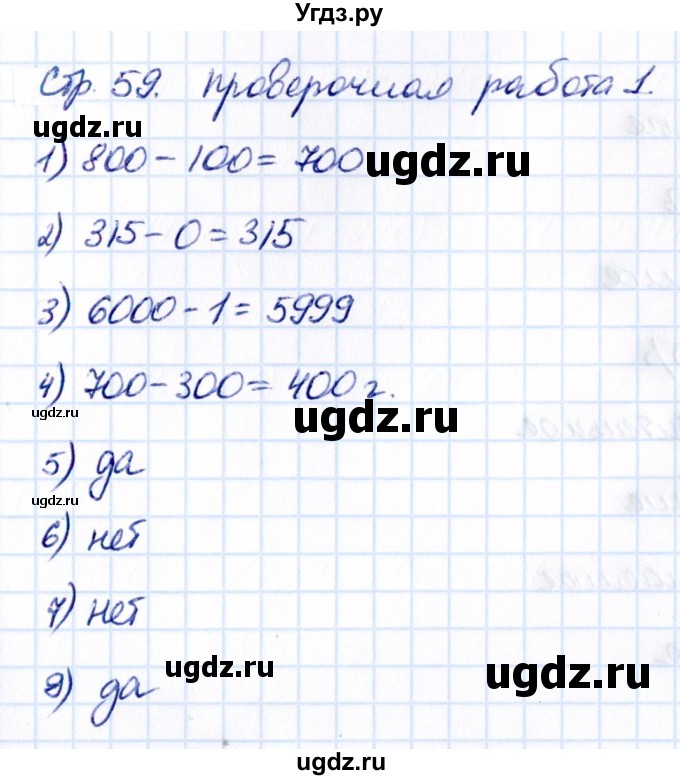 Угдз.ру
Стр. 59. проверочная работа 1.
ugdz.ru
1) 800 - 100 = 700 ugdz.ru
2) 315 - 0 = 315
3) 6000 - 1 = 5999
4) 700 - 300 = 400 г.
ugdz.ru ugdz.ru
5) да
ugdz.ru
6) нет
7) нет
ugdz.ru ugdz.ru
8) да
ugdz.ru